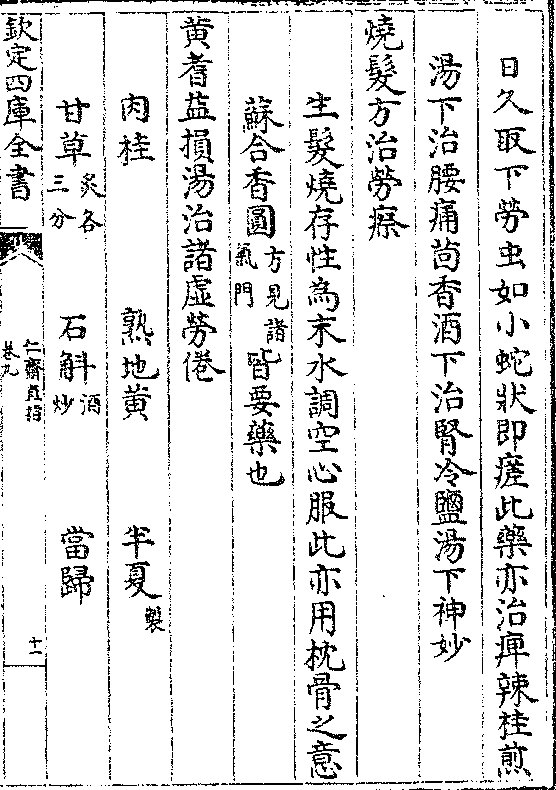 日久取下勞虫如小蛇狀即瘥此藥亦治痺辣桂煎
湯下治腰痛茴香酒下治腎冷鹽湯下神妙
燒髮方治勞瘵
生髮燒存性為末水調空心服此亦用枕骨之意
蘇合香圓方見諸氣門皆要藥也
黄耆益損湯治諸虛勞倦
肉桂 熟地黄 半夏製
甘草炙各三分 石斛酒炒 當歸
欽定四庫全書 仁齋直指 卷九 十一